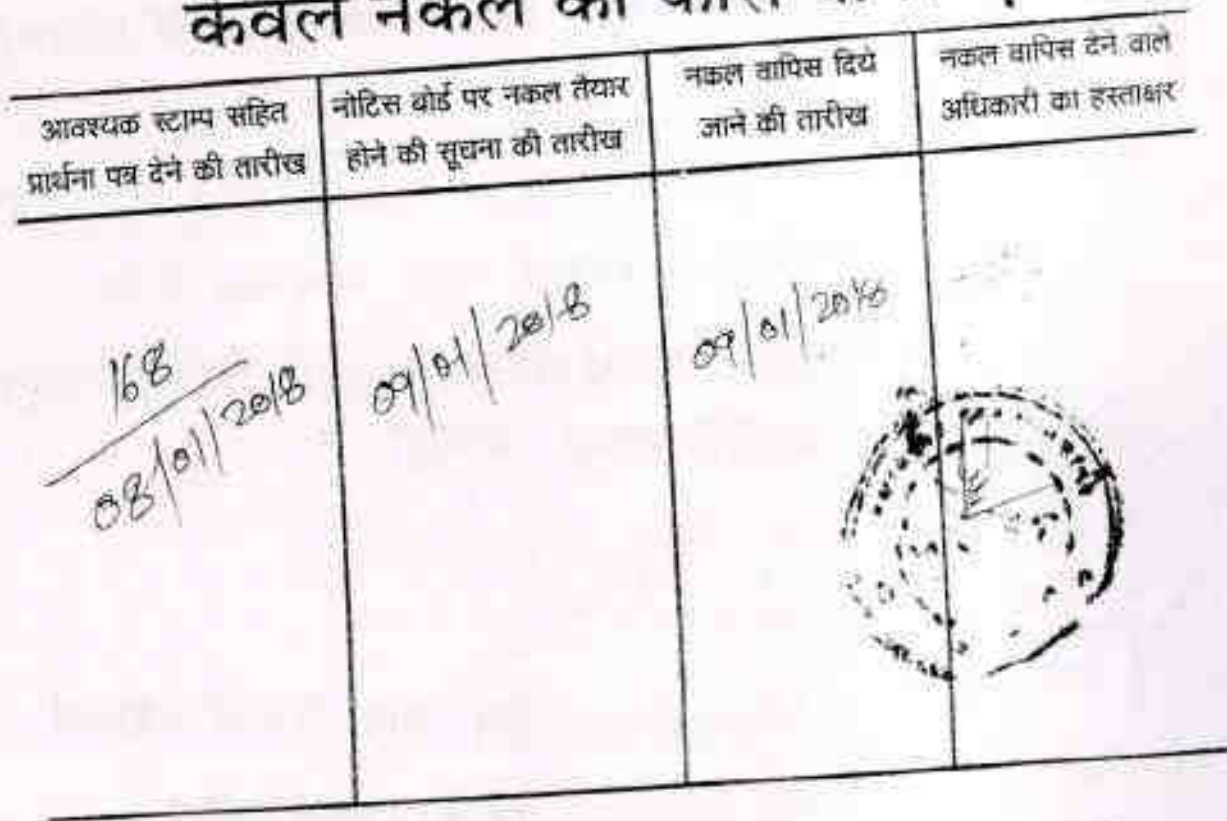 केवल नकल की
आवश्यक स्टाम्प सहित
प्रार्थना पत्र देने की तारीख
नोटिस बोर्ड पर नकल तैयार
होने की सूचना की तारीख
नकल वापिस दिये
जाने की तारीख
नकल वापिस देने वाले
अधिकारी का हस्ताक्षर
168
08/01/2018
09/01/2018
09/01/2018